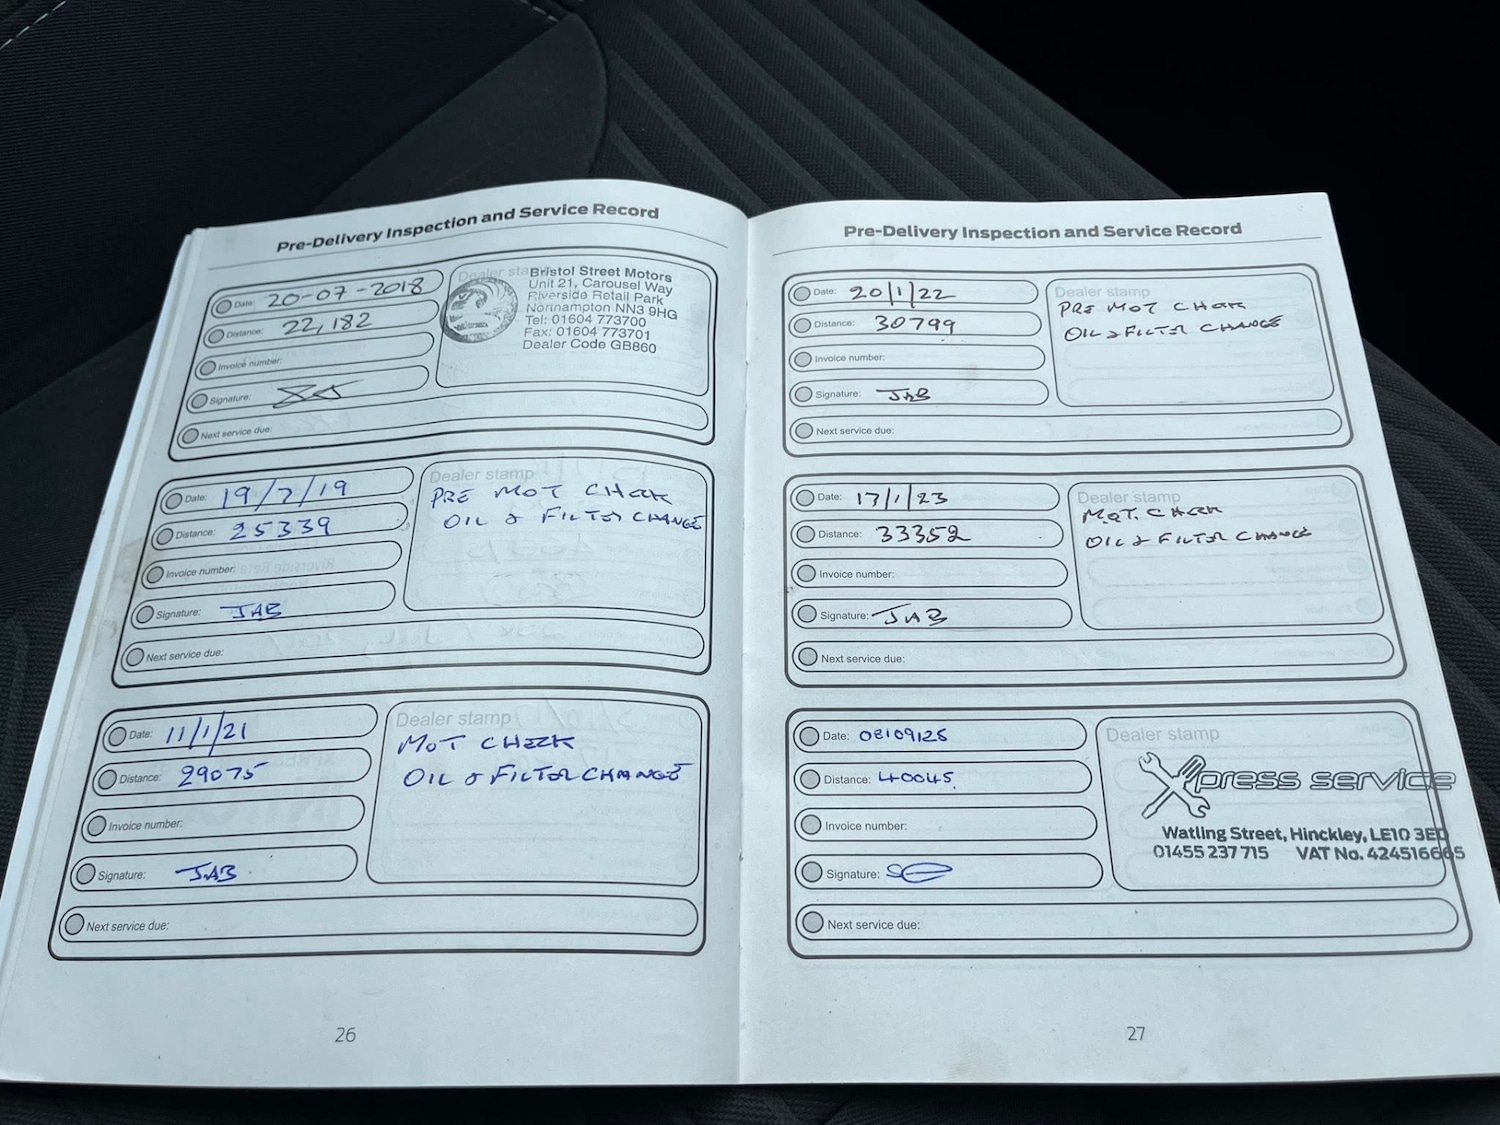 Pre-Delivery Inspection and Service Record
Date: 20-07-2018
Distance: 22,182
Invoice number:
Signature:
Next service due:
Dealer stamp
Bristol Street Motors
Unit 21, Carousel Way
Riverside Retail Park
Northampton NN3 9HG
Tel: 01604 773700
Fax: 01604 773701
Dealer Code GB860
Date: 19/7/19
Distance: 25339
Invoice number:
Signature: JAB
Next service due:
Dealer stamp
PRE MOT CHECK
OIL & FILTER CHANGE
Date: 11/1/21
Distance: 29075
Invoice number:
Signature: JAB
Next service due:
Dealer stamp
MOT CHECK
OIL & FILTER CHANGE
26
Pre-Delivery Inspection and Service Record
Date: 20/1/22
Distance: 30799
Invoice number:
Signature: JAB
Next service due:
Dealer stamp
PRE MOT CHECK
OIL & FILTER CHANGE
Date: 17/1/23
Distance: 33352
Invoice number:
Signature: JAB
Next service due:
Dealer stamp
M.O.T. CHECK
OIL & FILTER CHANGE
Date: 08/09/25
Distance: 40045
Invoice number:
Signature:
Next service due:
Dealer stamp
Xpress service
Watling Street, Hinckley, LE10 3ED
01455 237 715 VAT No. 424516665
27